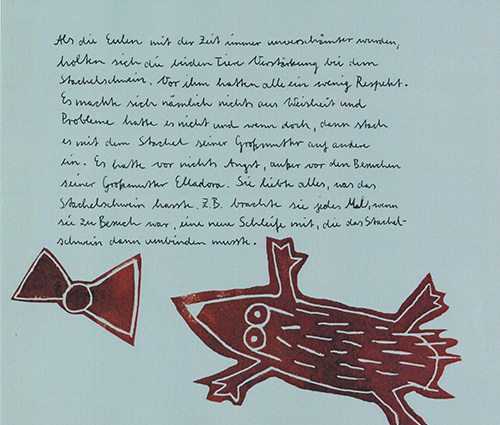 Als die Eulen mit der Zeit immer unverschämter wurden,
holten sich die beiden Tiere Verstärkung bei dem
Stachelschwein. Vor ihm hatten alle ein wenig Respekt.
Es machte sich nämlich nichts aus Weisheit und
Probleme hatte es nicht und wenn doch, dann stach
es mit dem Stachel seiner Großmutter auf andere
ein. Es hatte vor nichts Angst, außer vor den Besuchen
seiner Großmutter Elladora. Sie liebte alles, was das
Stachelschwein hasste. Z.B. brachte sie jedes Mal, wenn
sie zu Besuch war, eine neue Schleife mit, die das Stachel-
schwein dann umbinden musste.